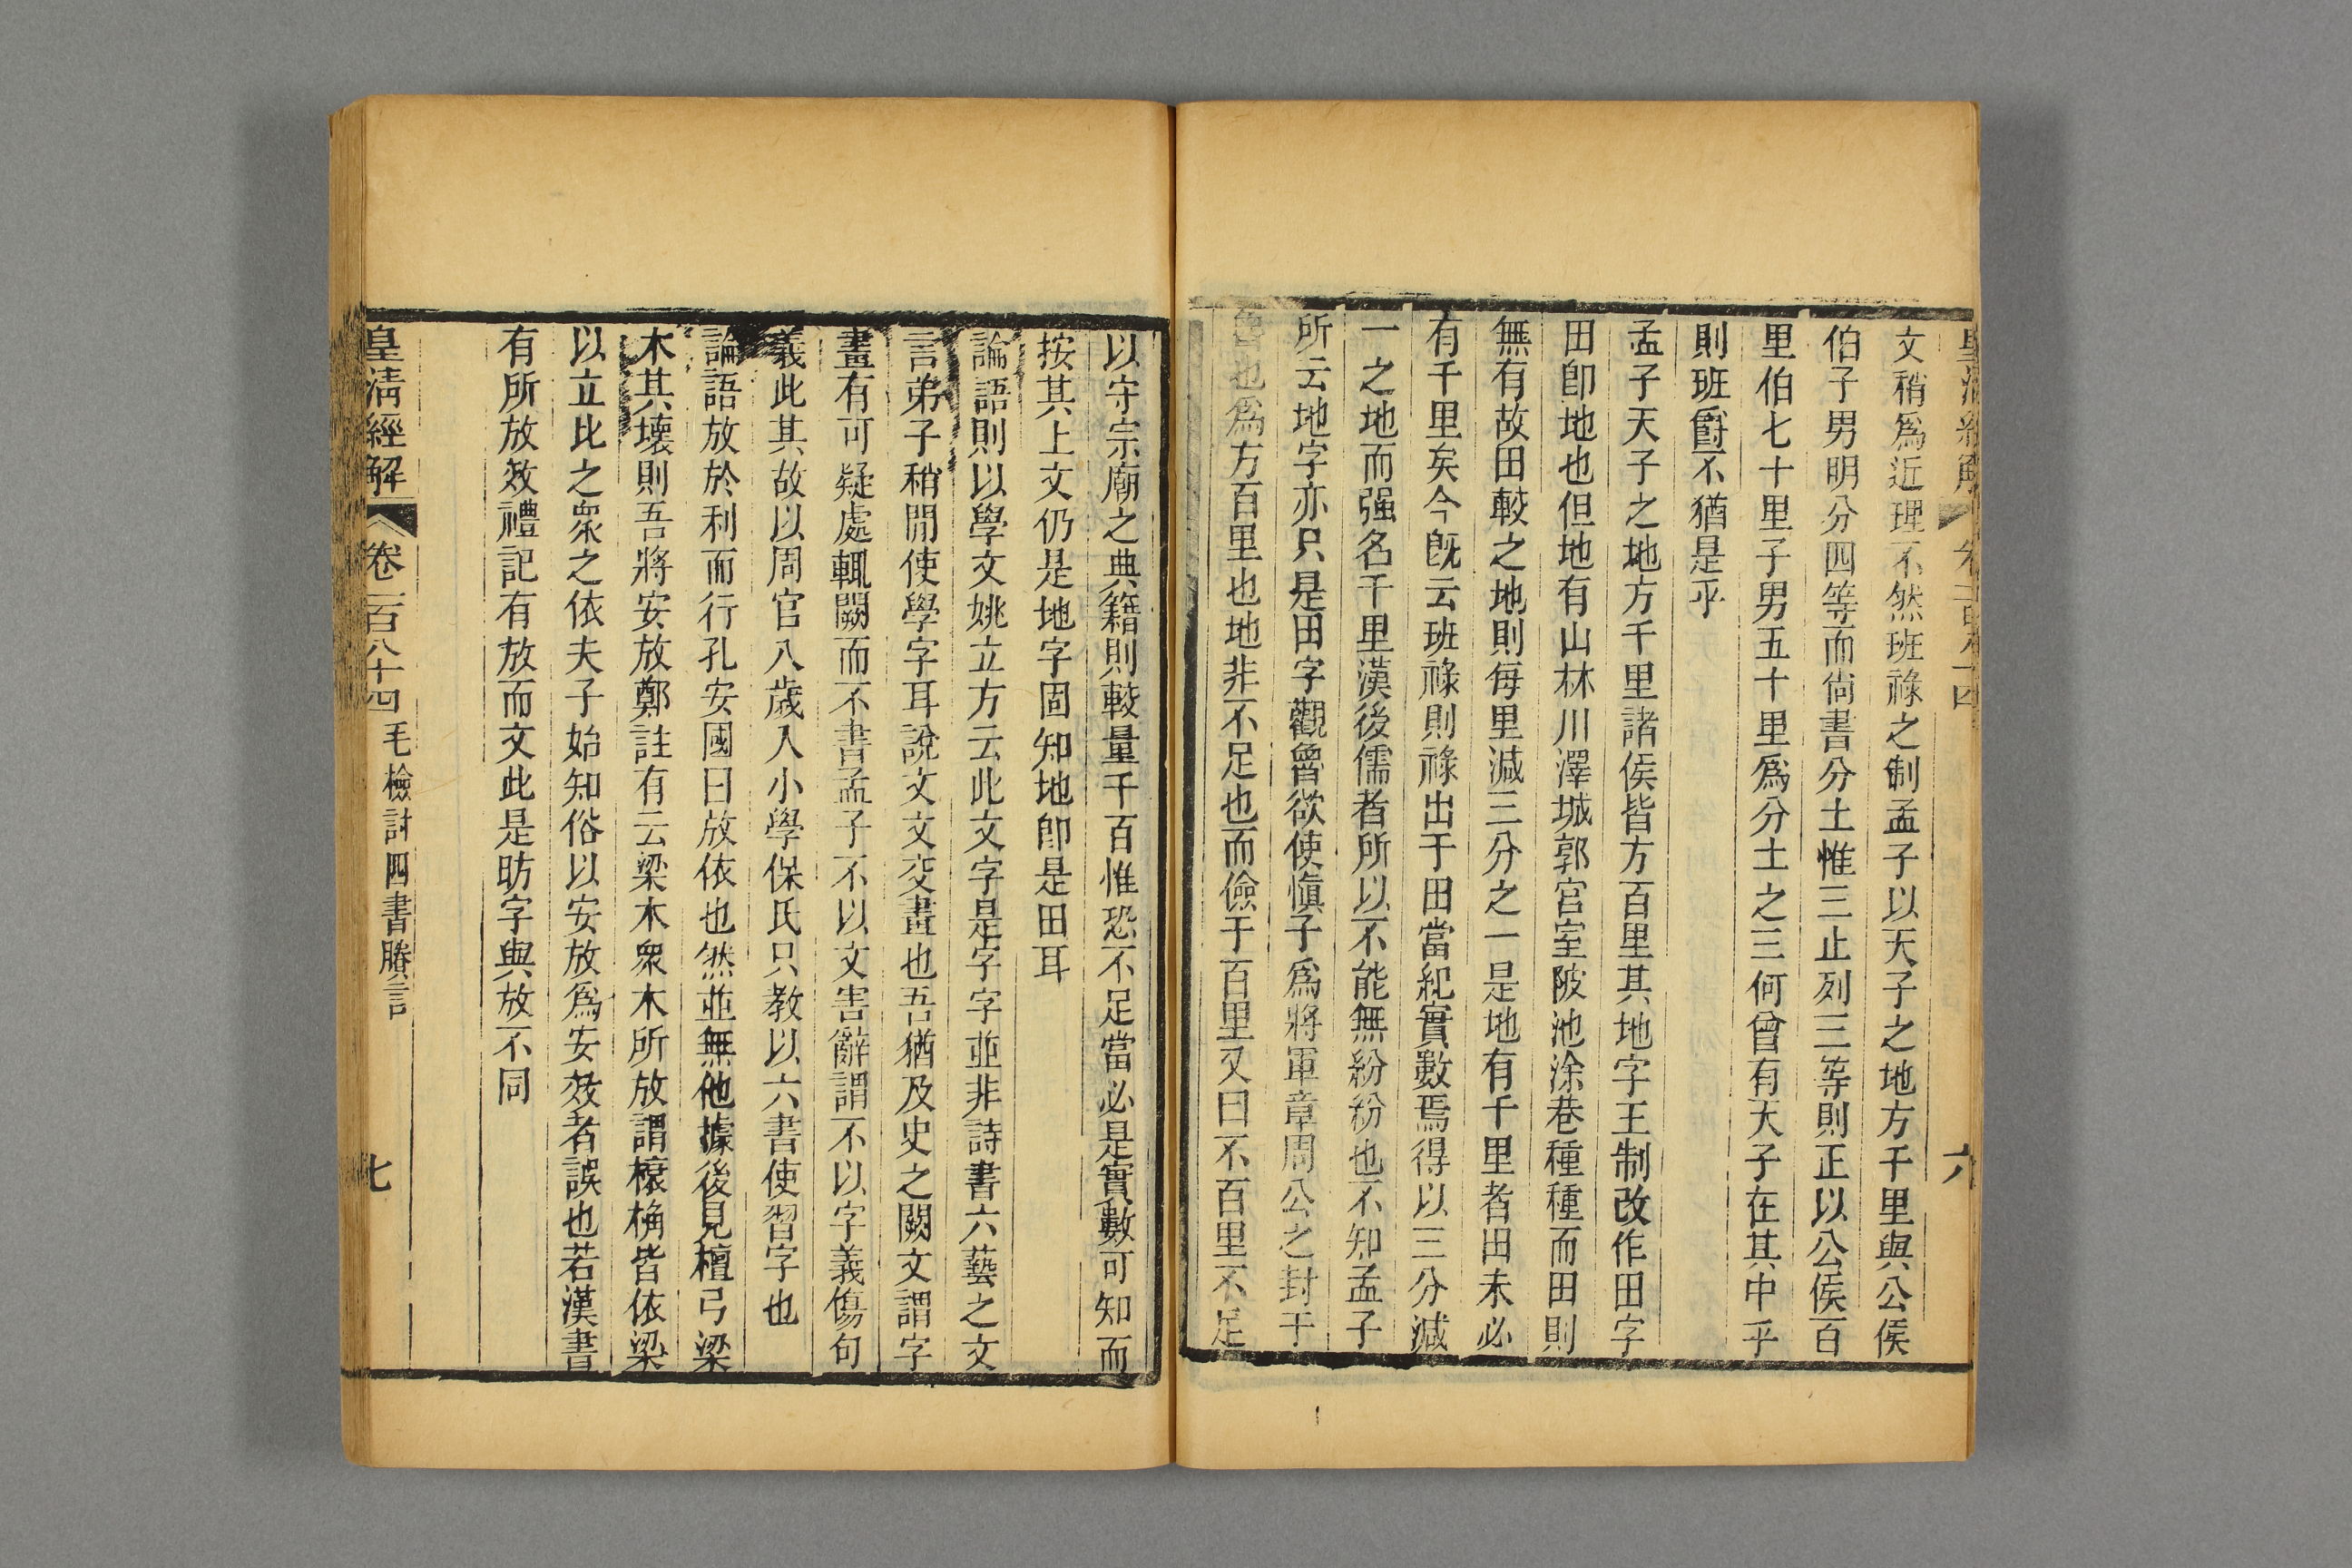 皇清經解
卷一百八十四
六
文稍爲近理不然班祿之制孟子以天子之地方千里與公侯
伯子男明分四等而尙書分土惟三止列三等則正以公侯百
里伯七十里子男五十里爲分土之三何曾有天子在其中乎
則班爵不猶是乎
孟子天子之地方千里諸侯皆方百里其地字王制改作田字
田卽地也但地有山林川澤城郭宮室陂池涂巷種種而田則
無有故田較之地則每里減三分之一是地有千里者田未必
有千里矣今旣云班祿則祿出于田當紀實數焉得以三分減
一之地而强名千里漢後儒者所以不能無紛紛也不知孟子
所云地字亦只是田字觀魯欲使愼子爲將軍章周公之封于
魯也爲方百里也地非不足也而儉于百里又曰不百里不足
以守宗廟之典籍則較量千百惟恐不足當必是實數可知而
按其上文仍是地字固知地卽是田耳
論語則以學文姚立方云此文字是字字並非詩書六藝之文
言弟子稍閒使學字耳說文文交畫也吾猶及史之闕文謂字
畫有可疑處輒闕而不書孟子不以文害辭謂不以字義傷句
義此其故以周官八歲入小學保氏只教以六書使習字也
論語放於利而行孔安國曰放依也然並無他據後見檀弓梁
木其壞則吾將安放鄭註有云梁木衆木所放謂榱桷皆依梁
以立比之衆之依夫子始知俗以安放爲安效者誤也若漢書
有所放效禮記有放而文此是昉字與放不同
皇清經解
卷一百八十四
毛檢討四書賸言
七